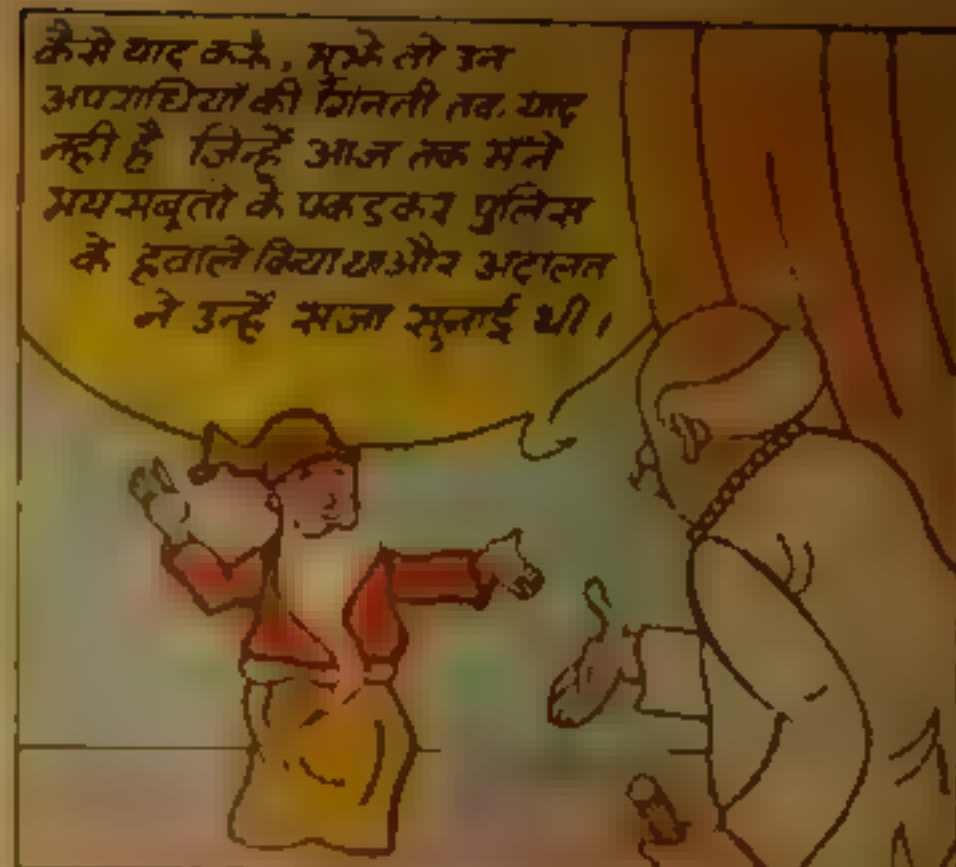 कैसे याद करूं, मुझे तो उन
अपराधियों की गिनती तक याद
नहीं है जिन्हें आज तक मैंने
मय सबूतों के पकड़कर पुलिस
के हवाले किया था और अदालत
ने उन्हें सजा सुनाई थी।